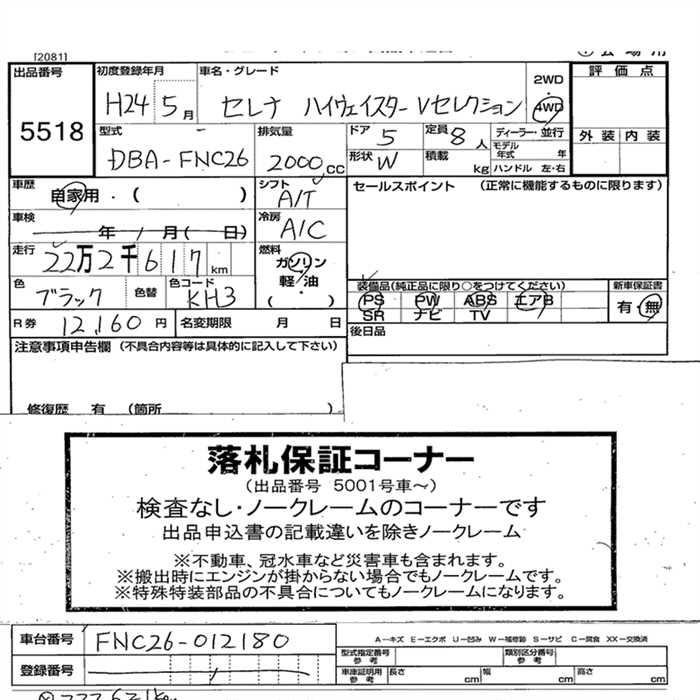 [2081]
出品番号 初度登録年月 車名・グレード 2WD 評価点
5518 H24 5月 セレナ ハイウェイスター Vセレクション 4WD
型式 排気量 ドア 5 定員 8人 ディーラー・並行 外装 内装
DBA-FNC26 2000cc 形状 W 積載 kg モデル年式 年
ハンドル 左・右
車歴 自家用・( ) シフト A/T セールスポイント (正常に機能するものに限ります)
車検 年 月( 日) 冷房 A/C
走行 22万2千617km 燃料 ガソリン
軽油
( )
色 ブラック 色替 色コード KH3
装備品(純正品に限り○をつけてください) 新車保証書
PS PW ABS エアB 有・無
SR ナビ TV
R券 12,160円 名変期限 月 日 後日品
注意事項申告欄 (不具合内容等は具体的に記入して下さい)
修復歴 有 (箇所 )
落札保証コーナー
(出品番号 5001号車~)
検査なし・ノークレームのコーナーです
出品申込書の記載違いを除きノークレーム
※不動車、冠水車など災害車も含まれます。
※搬出時にエンジンが掛からない場合でもノークレームです。
※特殊特装部品の不具合についてもノークレームになります。
車台番号 FNC26-012180
A-キズ E-エクボ U-凹み W-補修跡 S-サビ C-腐食 XX-交換済
型式指定番号 参考 類別区分番号 参考
登録番号 車庫証明用 参考 長さ cm 幅 cm 高さ cm